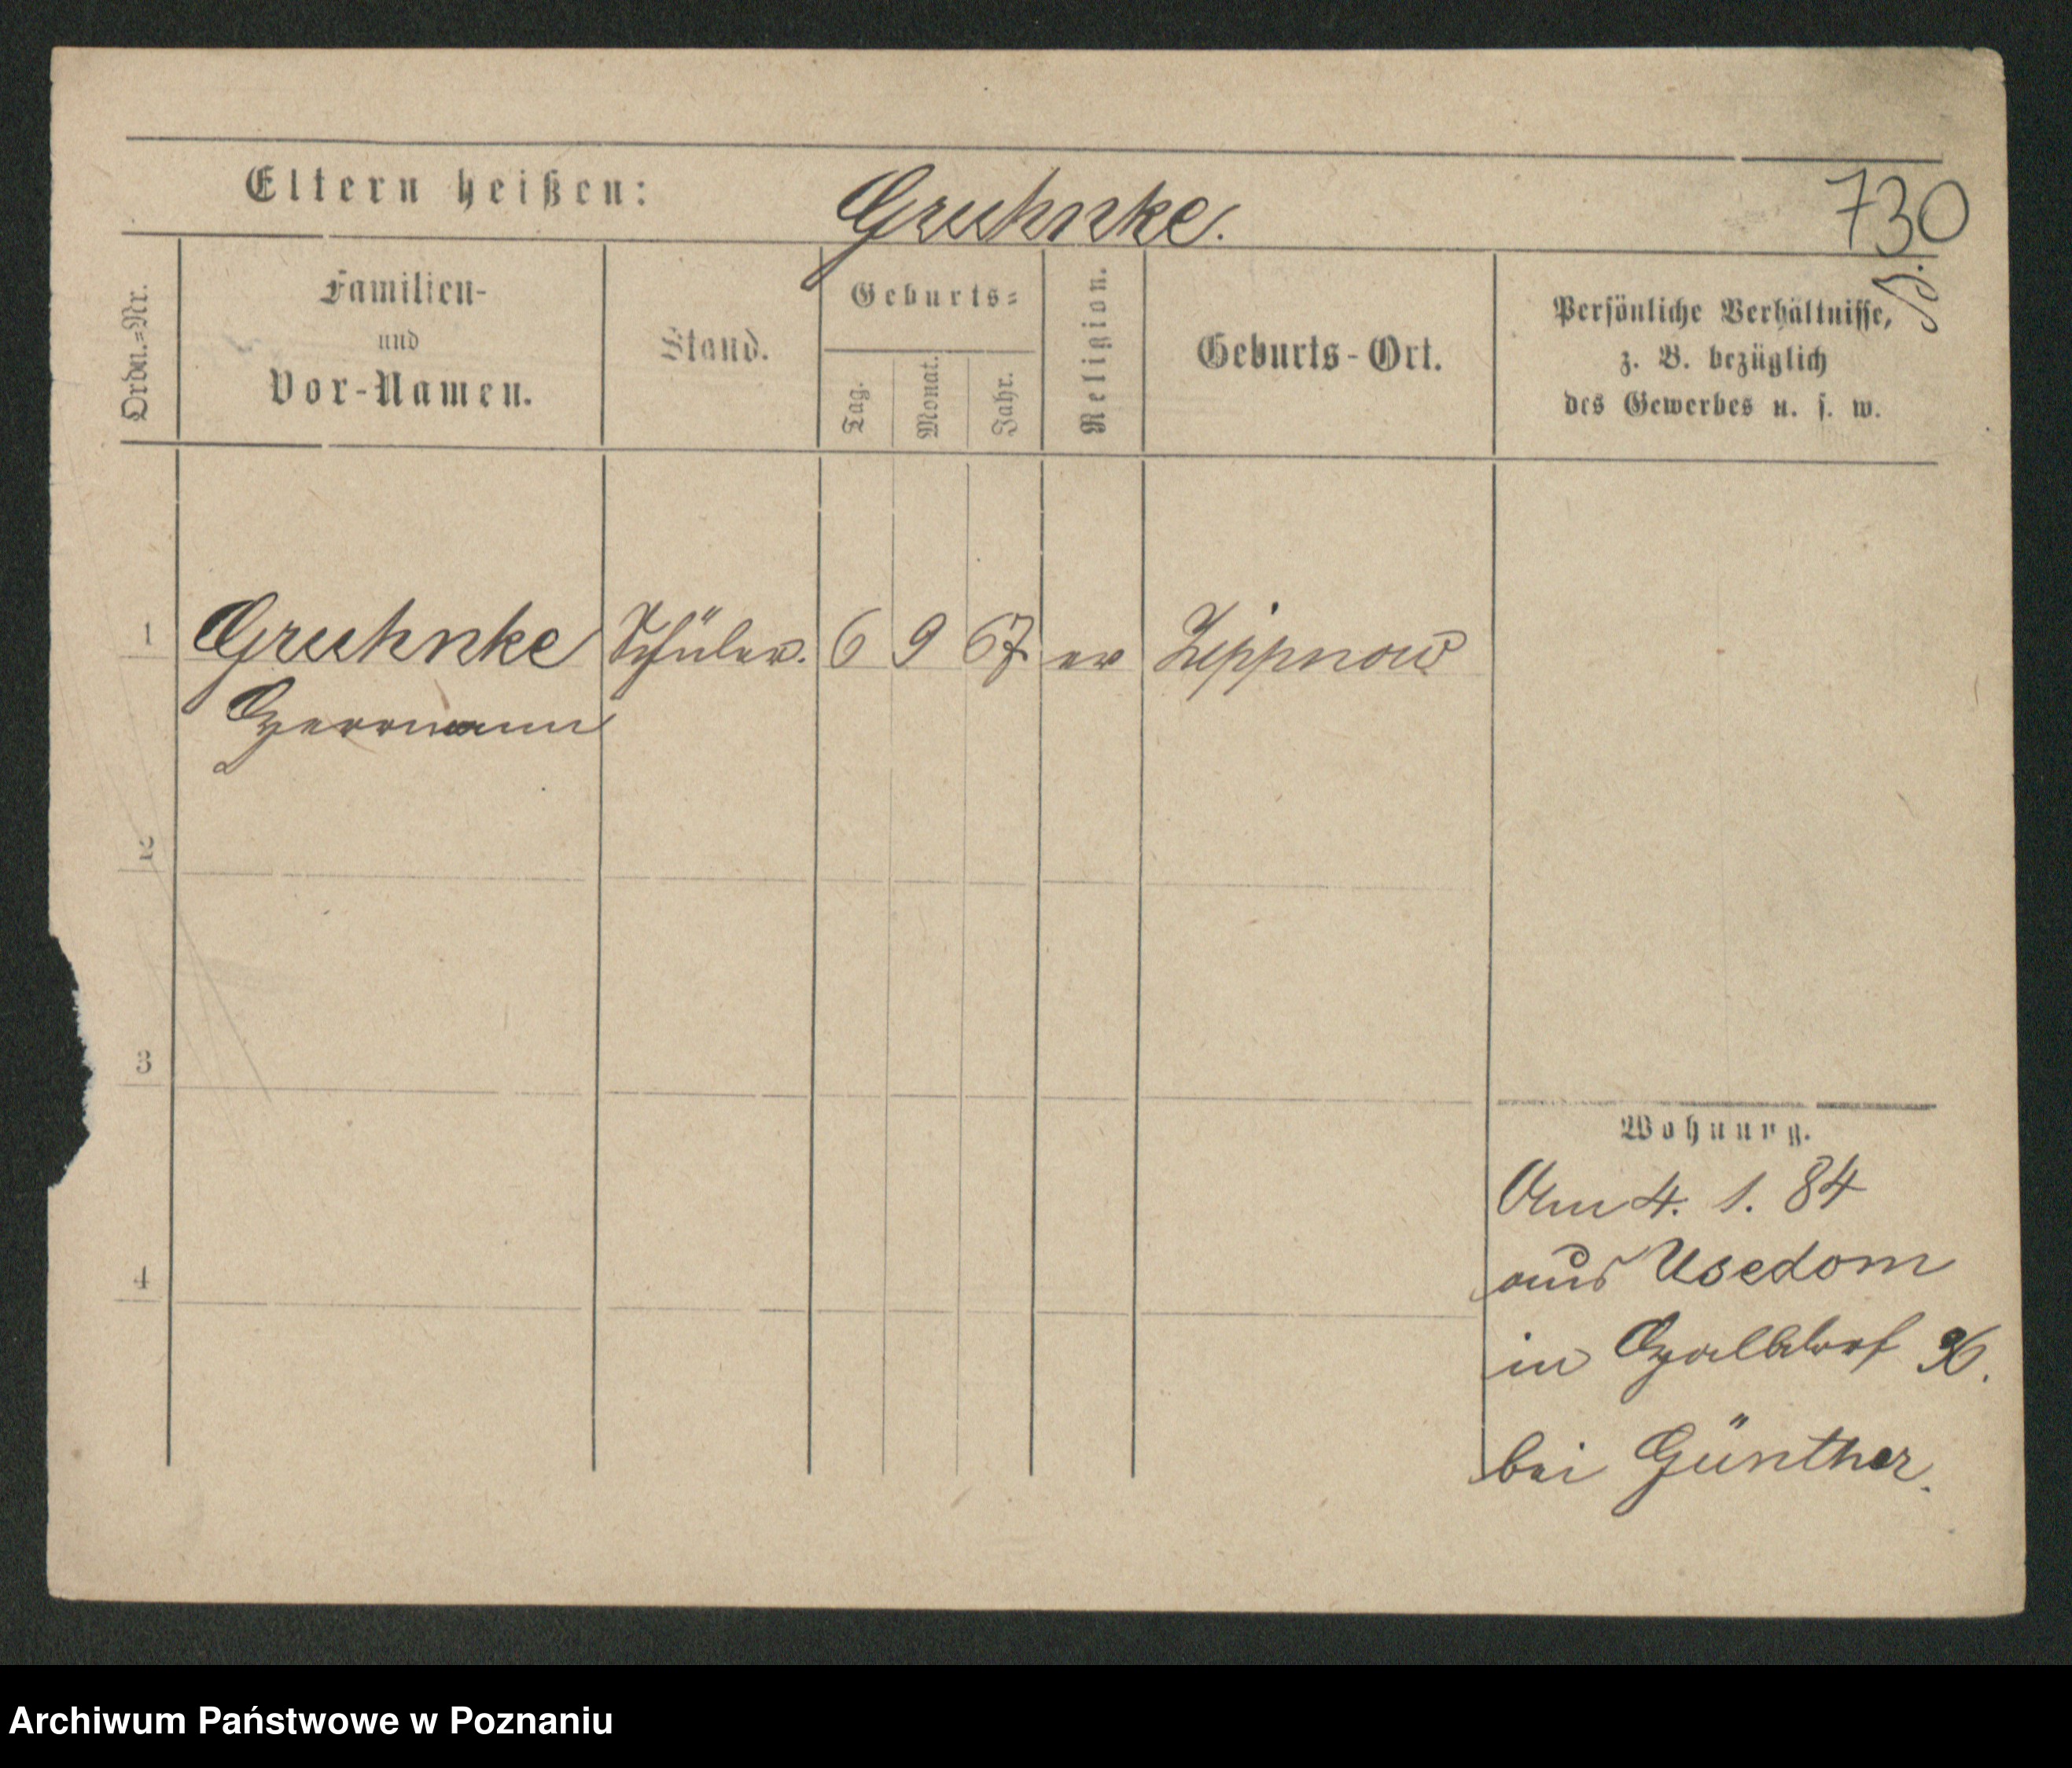 Eltern heißen: Gruhnke. 730
Ordn.=Nr.
Familien-
und
Vor-Namen.
Stand.
Geburts=
Tag.
Monat.
Jahr.
Religion.
Geburts-Ort.
Persönliche Verhältnisse,
z. B. bezüglich
des Gewerbes u. s. w.
1 Gruhnke Schüler. 6 9 67 ev Zippnow
Herrmann
2
3
4
Wohnung.
Am 4. 1. 84
aus Usedom
in Halbdorf 36.
bei Günther.
Archiwum Państwowe w Poznaniu